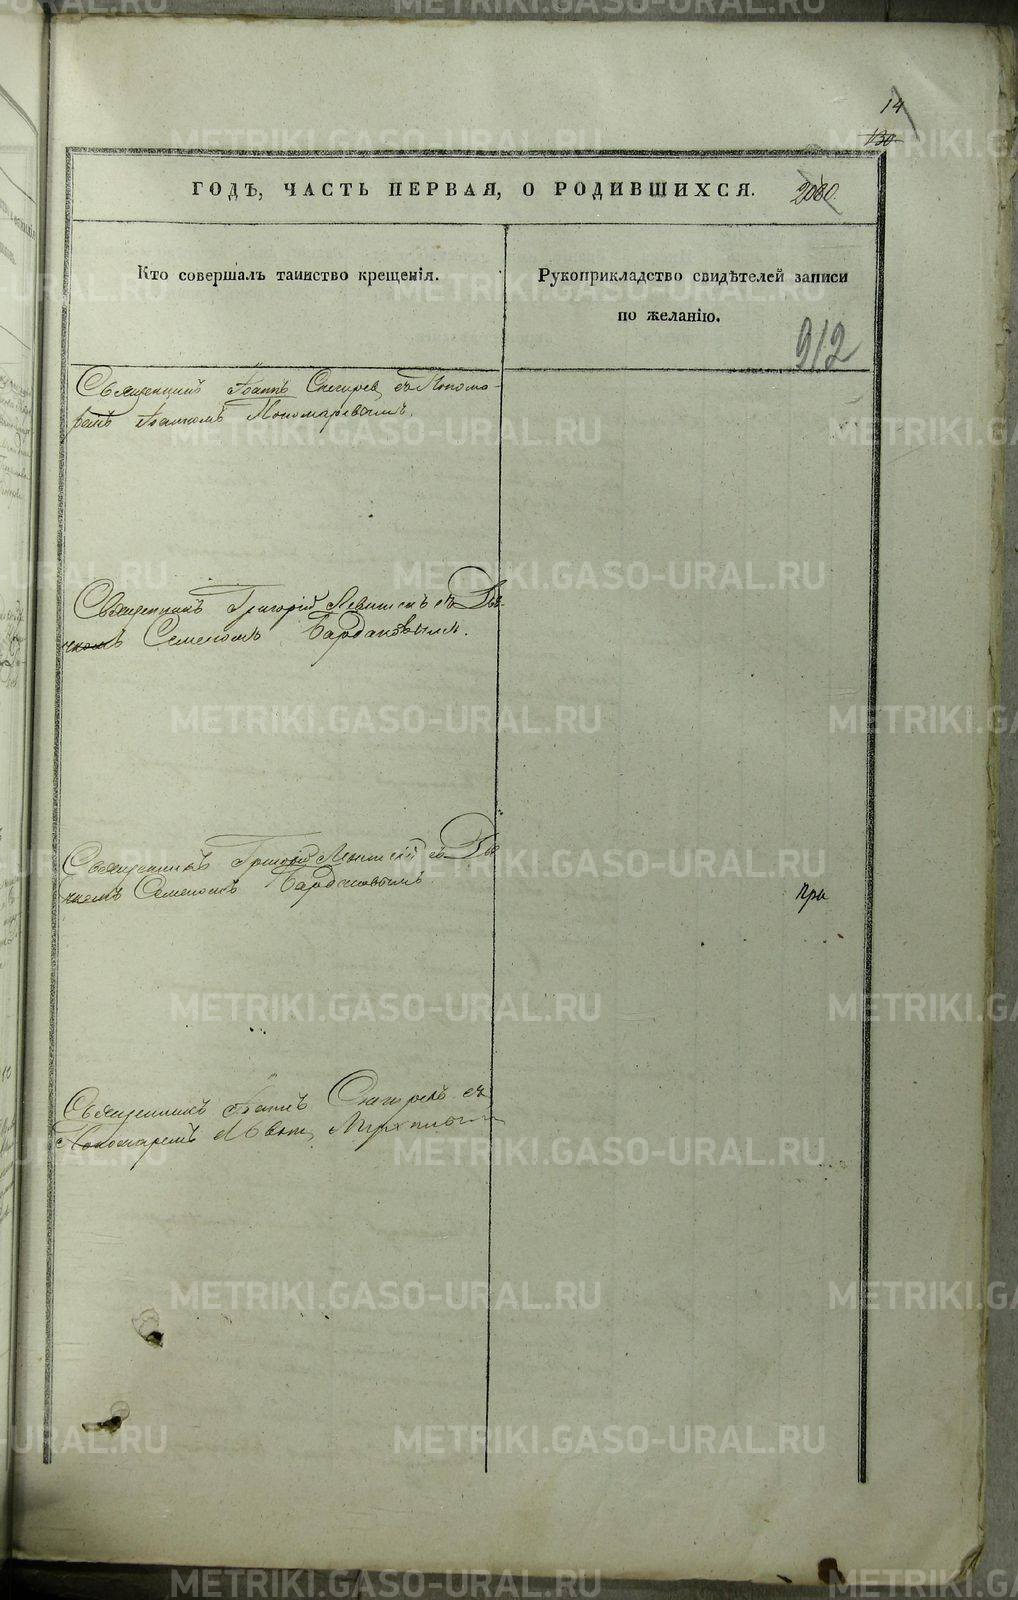 14
130
ГОДЪ, ЧАСТЬ ПЕРВАЯ, О РОДИВШИХСЯ.
Кто совершалъ таинство крещенія.
Рукоприкладство свидѣтелей записи
по желанію.
912
Священникъ Іоаннъ Снегирев съ Понома-
ремъ Іоанномъ Пономаревымъ.
Священникъ Григорій съ Дья-
чкомъ Семеномъ Бардаковымъ.
Священникъ Григорій съ Дья
чкомъ Семеномъ Бардаковымъ
при
Священникъ Іоаннъ Снегиревъ съ
Пономаремъ
METRIKI.GASO-URAL.RU